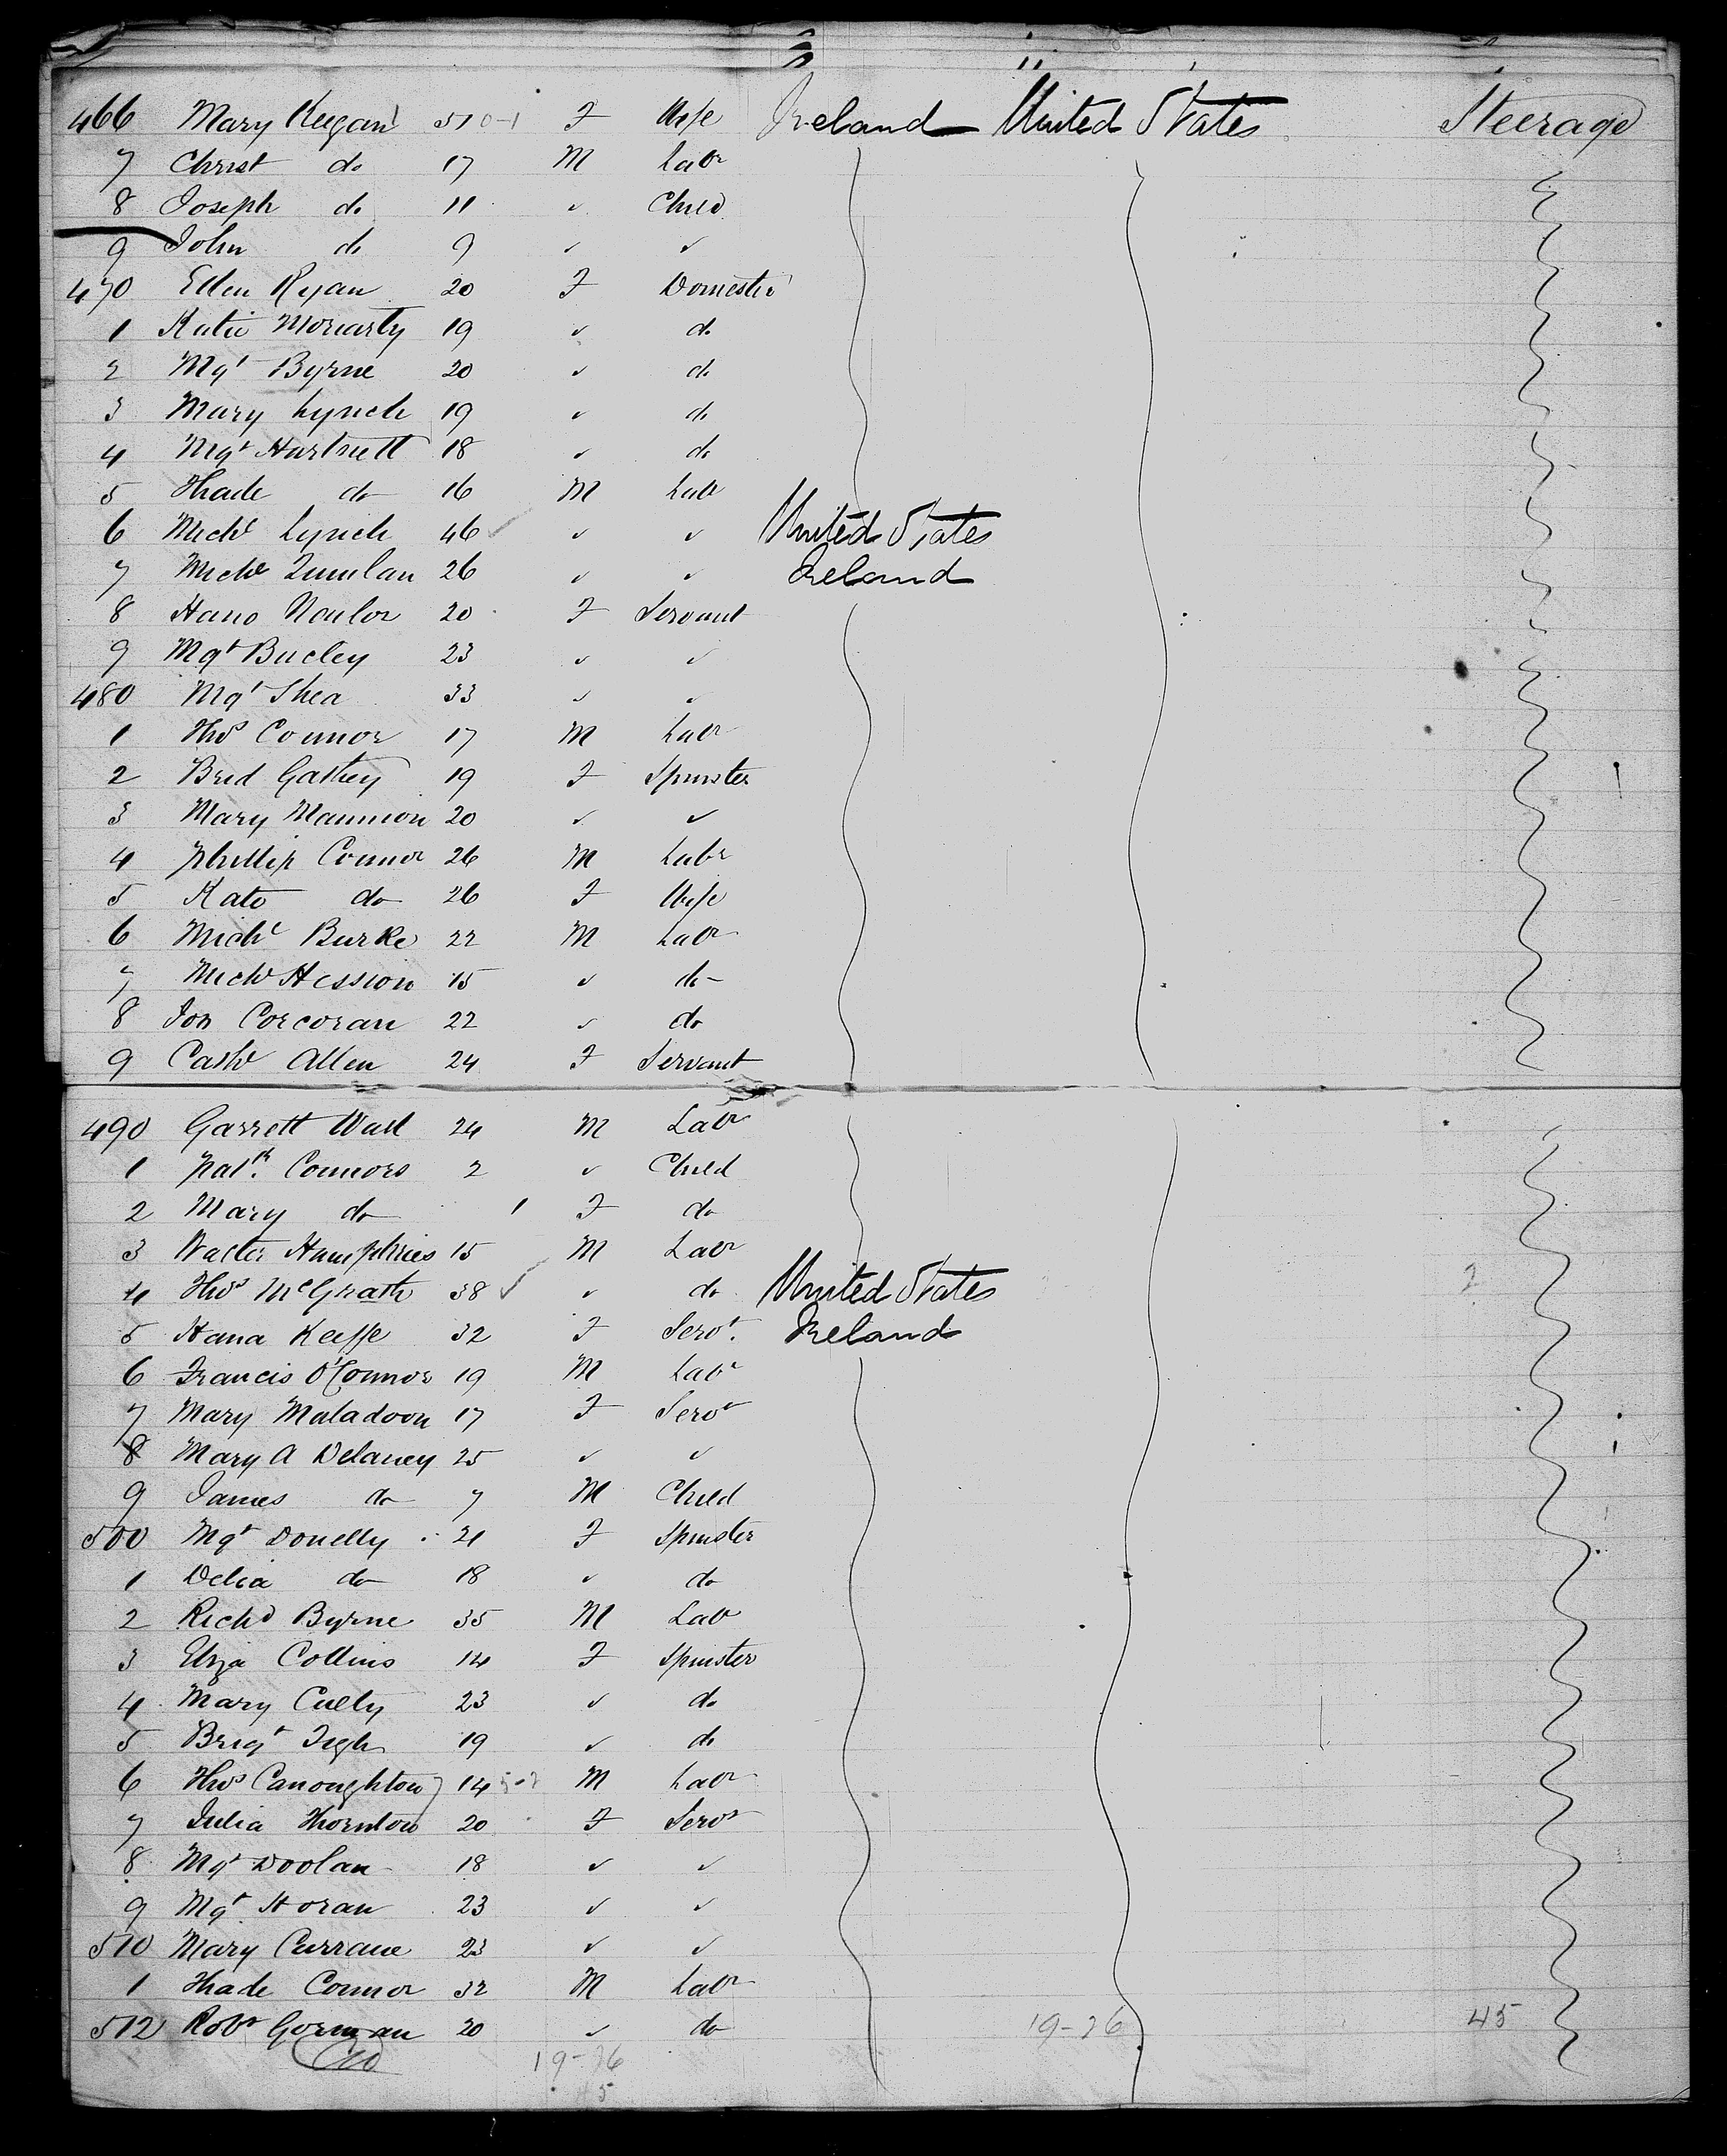 466 Mary Keegan 51 0-1 F Wife Ireland United States Steerage
7 Christ do 17 M Labr
8 Joseph do 11 ✓ Child
9 John do 9 ✓ ✓
470 Ellen Ryan 20 F Domestic
1 Katie Moriarty 19 ✓ do
2 Mgt Byrne 20 ✓ do
3 Mary Lynch 19 ✓ do
4 Mgt Hartnett 18 ✓ do
5 Thade do 16 M Labr
6 Michl Lynch 46 ✓ ✓ United States
7 Michl Quinlan 26 ✓ ✓ Ireland
8 20 F Servant
9 Mgt Bucley 23 ✓ ✓
480 Mgt Shea 33 ✓ ✓
1 Thos Connor 17 M Labr
2 Brid Gathey 19 F Spinster
3 Mary Mannion 20 ✓ ✓
4 Phillip Connor 26 M Labr
5 Kate do 26 F Wife
6 Michl Burke 22 M Labr
7 Michl Hession 15 ✓ do
8 Jos Corcoran 22 ✓ do
9 Cathe Allen 24 F Servant
490 Garrett Wall 24 M Labr
1 Patk. Connors 2 ✓ Child
2 Mary do 1 F do
3 Walter Humphries 15 M Labr
4 Thos McGrath 38 ✓ do United States
5 Hana Keffe 32 F Servt. Ireland
6 Francis O'Connor 19 M Labr
7 Mary Maladoon 17 F Servt
8 Mary A Delaney 25 ✓ ✓
9 James do 7 M Child
500 Mgt Donelly 21 F Spinster
1 Delia do 18 ✓ do
2 Richd Byrne 35 M Labr
3 Eliza Collins 14 F Spinster
4 Mary Culty 23 ✓ do
5 Brigt Tigh 19 ✓ do
6 Thos Canoughton 14 M Labr
7 Julia Thornton 20 F Servt
8 Mgt Doolan 18 ✓ ✓
9 Mgt Horan 23 ✓ ✓
510 Mary Currane 23 ✓ ✓
1 Thade Connor 32 M Labr
512 Robt Gorman 20 ✓ do 19-26 45
19-26
45